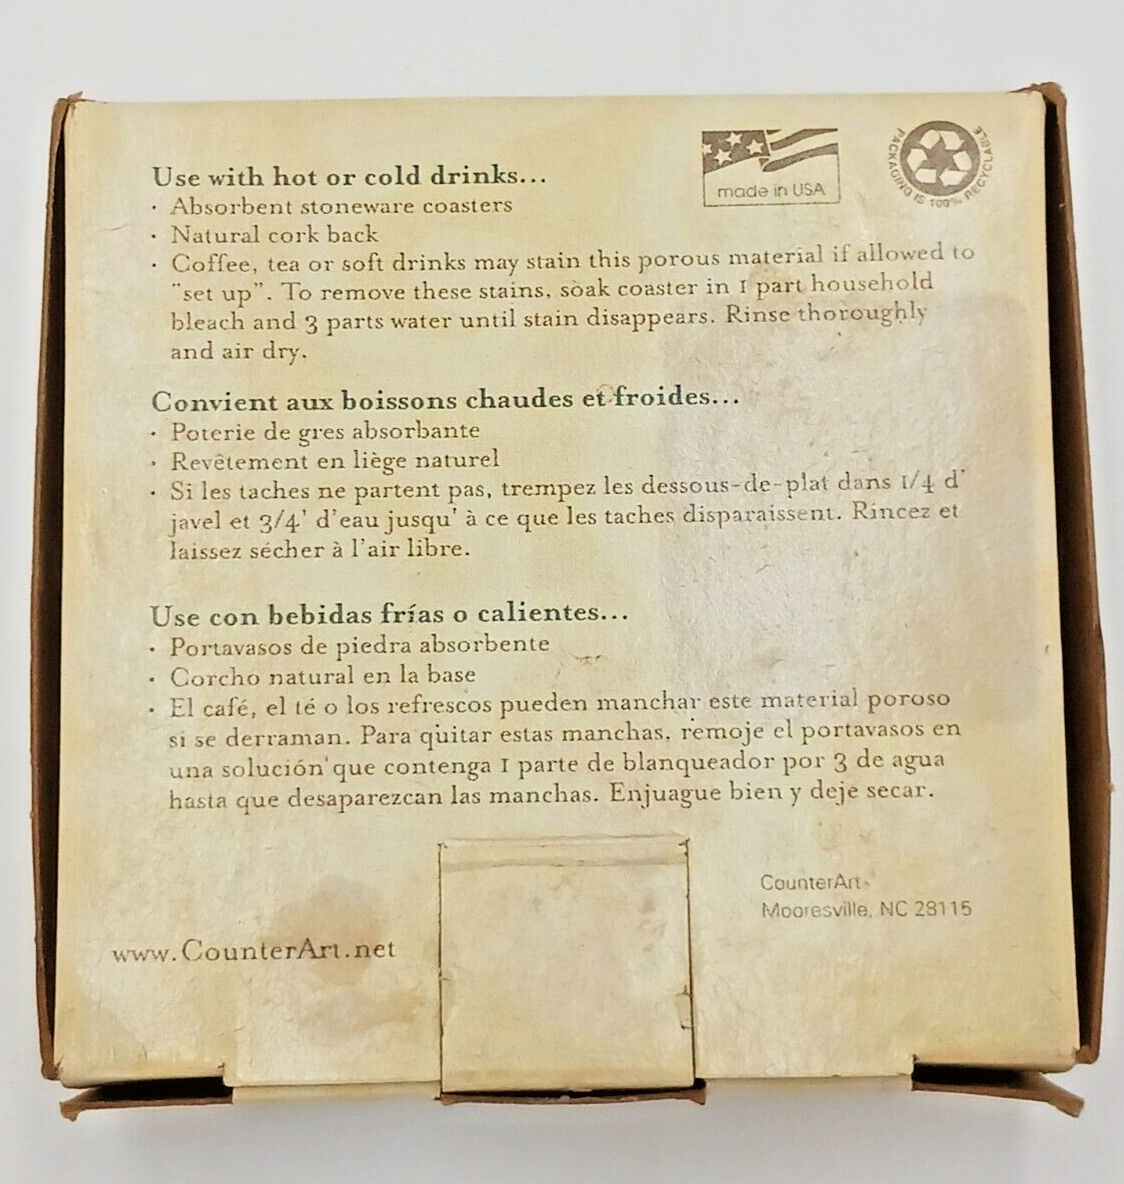 made in USA
PACKAGING IS 100% RECYCLABLE
Use with hot or cold drinks...
· Absorbent stoneware coasters
· Natural cork back
· Coffee, tea or soft drinks may stain this porous material if allowed to
"set up". To remove these stains, soak coaster in 1 part household
bleach and 3 parts water until stain disappears. Rinse thoroughly
and air dry.
Convient aux boissons chaudes et froides...
· Poterie de gres absorbante
· Revêtement en liège naturel
· Si les taches ne partent pas, trempez les dessous-de-plat dans 1/4 d'
javel et 3/4' d'eau jusqu' à ce que les taches disparaissent. Rincez et
laissez sécher à l'air libre.
Use con bebidas frías o calientes...
· Portavasos de piedra absorbente
· Corcho natural en la base
· El café, el té o los refrescos pueden manchar este material poroso
si se derraman. Para quitar estas manchas, remoje el portavasos en
una solución que contenga 1 parte de blanqueador por 3 de agua
hasta que desaparezcan las manchas. Enjuague bien y deje secar.
CounterArt
Mooresville, NC 28115
www.CounterArt.net